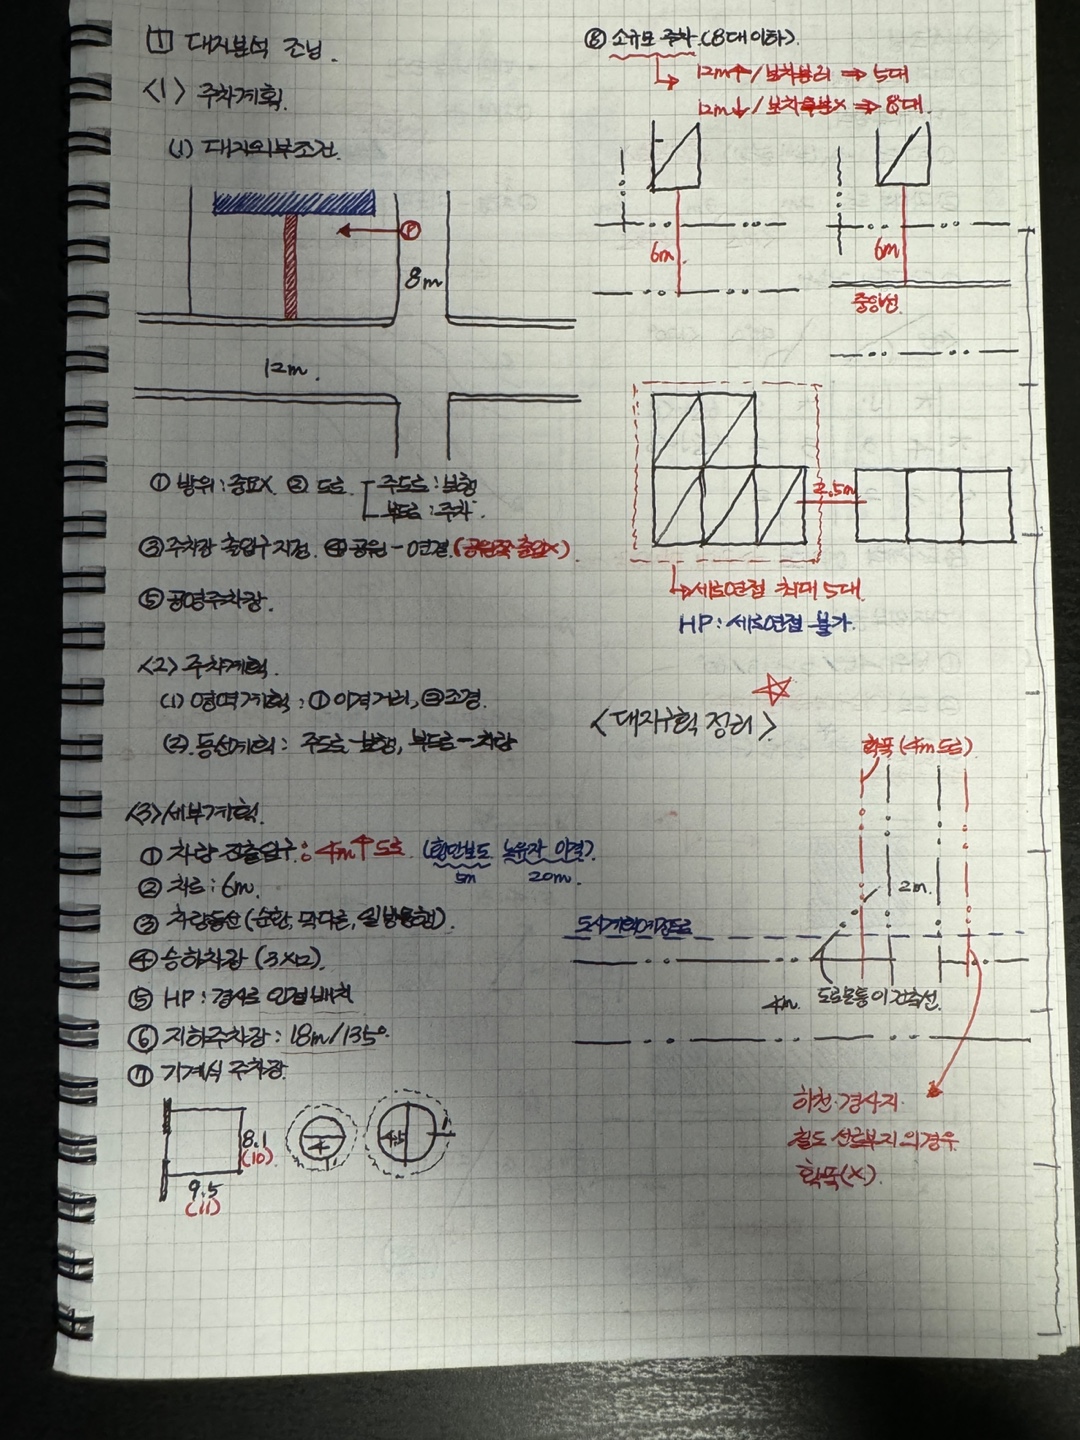 1 대지분석 조닝.
<1> 주차계획.
(1) 대지외부조건.
P
8m
12m.
① 방위: 중요X. ② 도로 주도로: 보행
부도로: 주차.
③ 주차장 출입구 지정. ④ 공원-연결. (공원쪽 출입X)
⑤ 공영주차장.
<2> 주차계획.
(1) 영역계획: ① 이격거리, ② 조경.
(2) 동선계획: 주도로-보행, 부도로-차량
<3> 세부계획.
① 차량 진출입구: 4m↑ 도로 (횡단보도 노유자 이격).
5m 20m.
② 차로: 6m.
③ 차량동선 (순환, 막다른, 일방통행).
④ 승하차장 (3×□).
⑤ HP: 경사로 인접 배치
⑥ 지하주차장: 18m/135°.
⑦ 기계식 주차장.
8.1
(10).
9.5
(11)
4
1
4.5
1
⑧ 소규모 주차. (8대 이하).
12m↑/보차분리 ⇒ 5대
12m↓/보차분X ⇒ 8대.
6m.
6m
중앙선.
2.5m
세로연접 최대 5대.
HP: 세로연접 불가.
<대지구획 정리>.
확폭 (4m 도로).
2m.
도시계획예정도로
4m. 도로모퉁이 건축선.
하천·경사지
철도 선로부지의 경우
확폭(X).